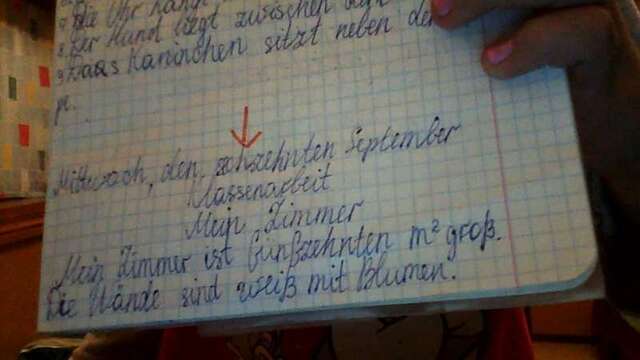 Die Uhr hängt
8. Der Hund liegt zwischen
9. Daas Kaninchen sitzt neben de
Mittwoch, den sohszehnten September
Klassenarbeit
Mein Zimmer
Mein Zimmer ist fünfzehnten m² groß.
Die Wände sind weiß mit Blumen.